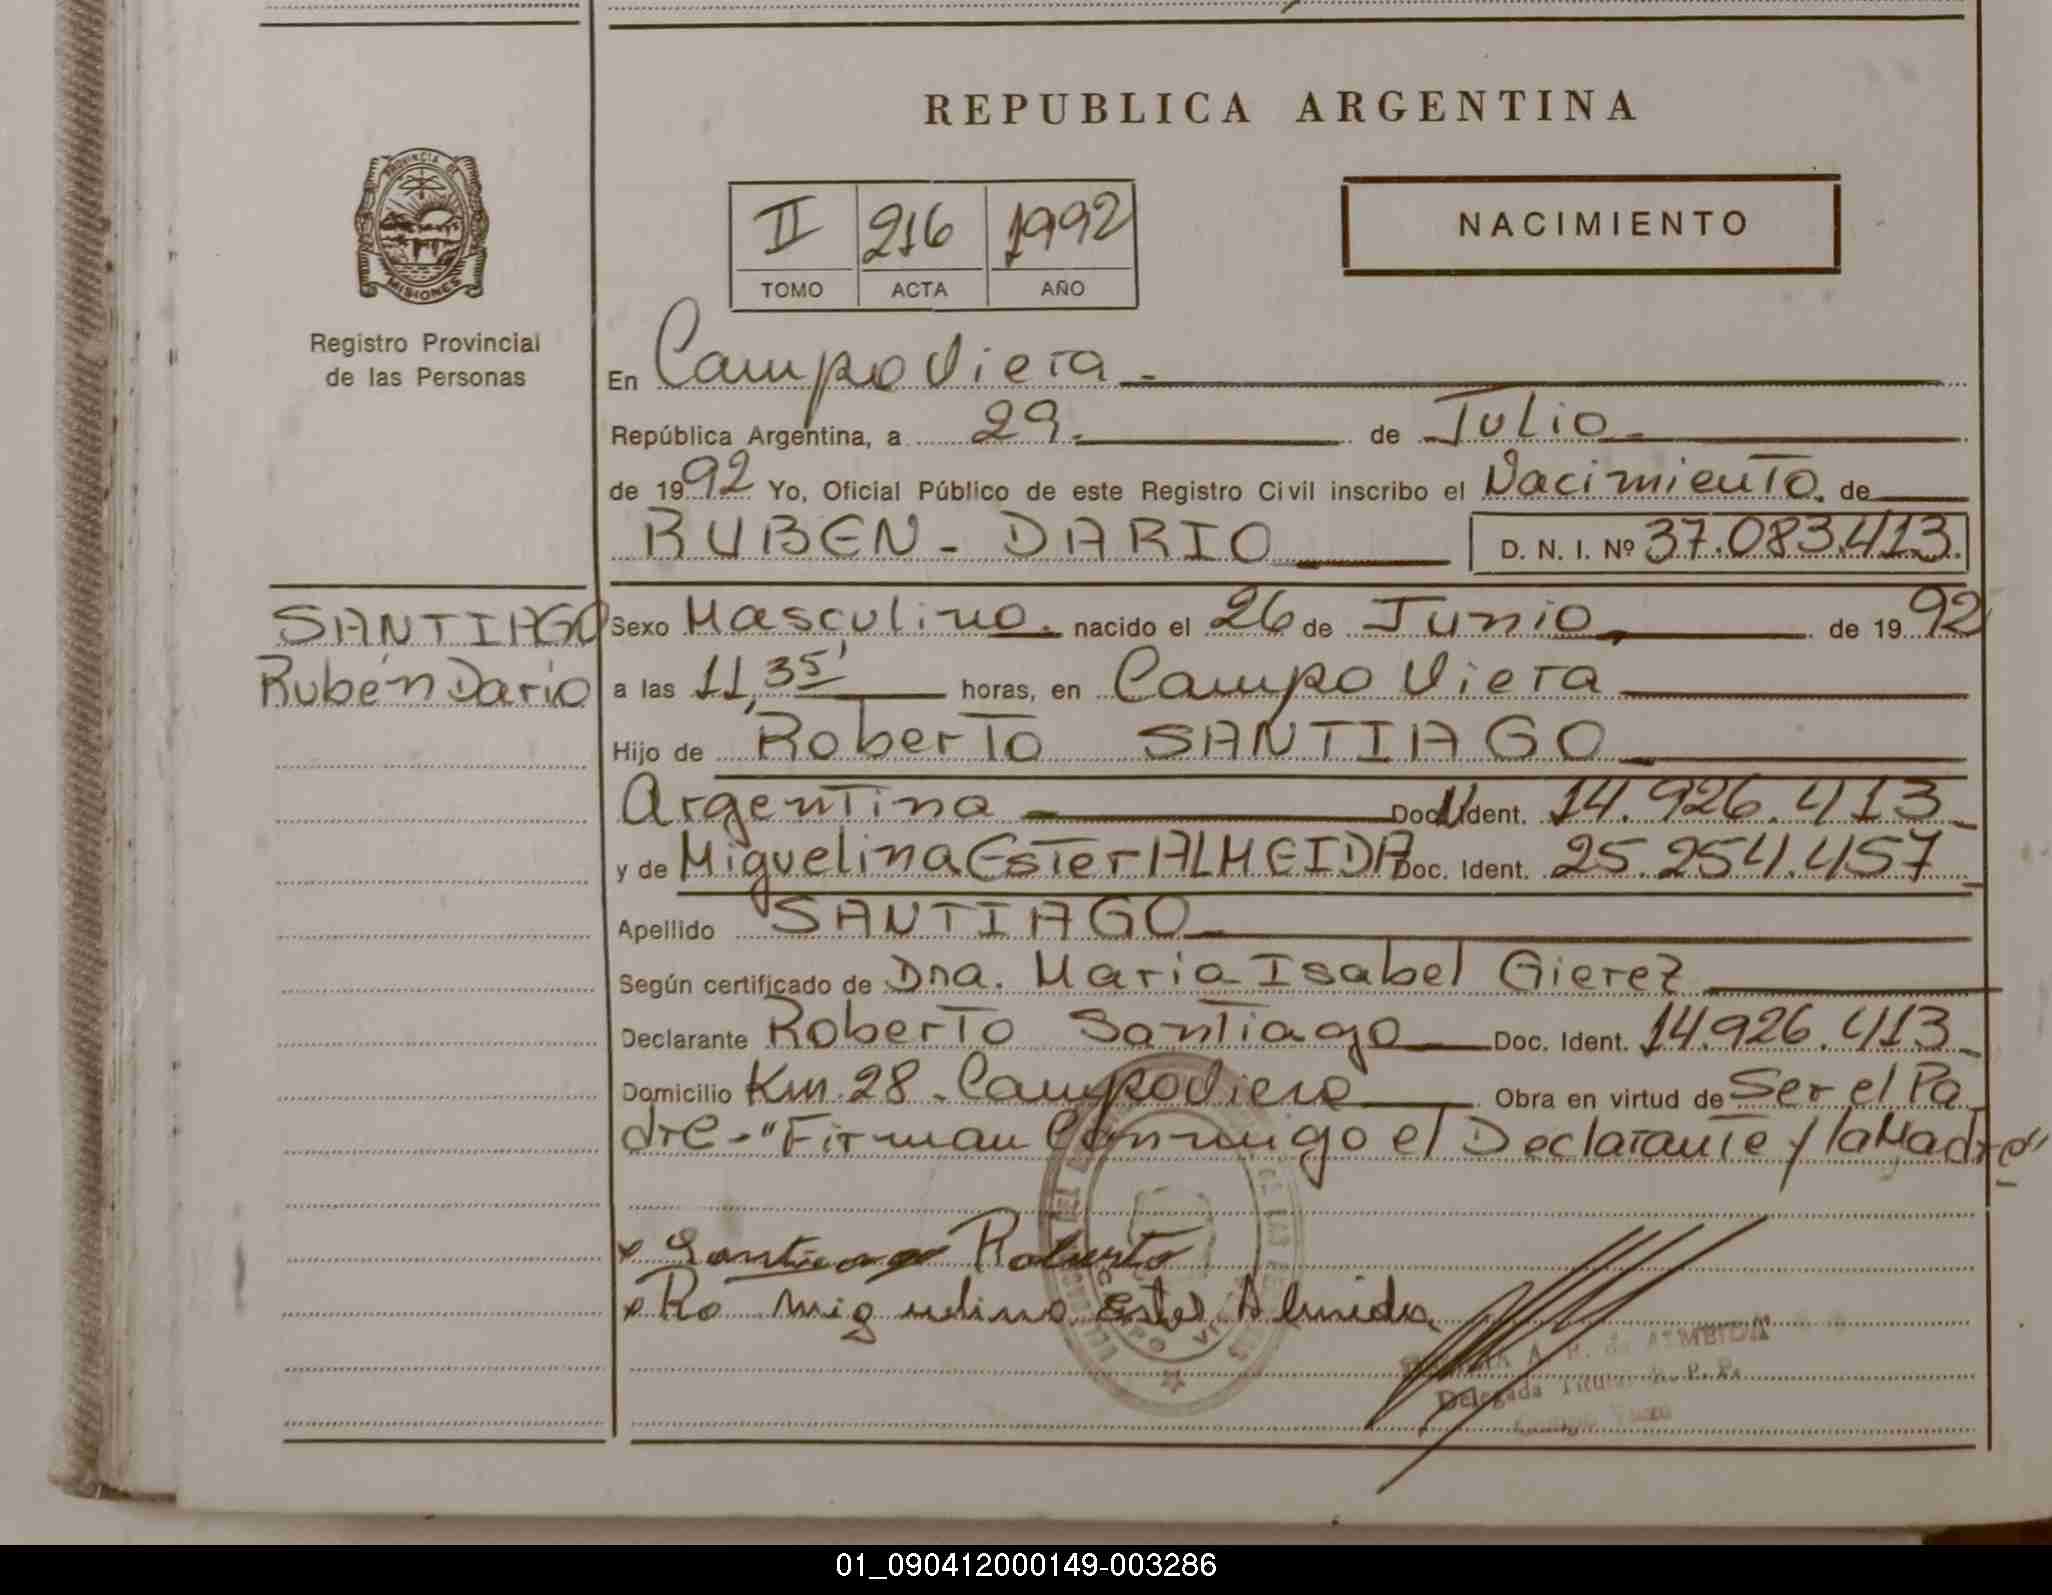 REPUBLICA ARGENTINA
PROVINCIA DE
MISIONES
Registro Provincial
de las Personas
II 216 1992
TOMO ACTA AÑO
NACIMIENTO
En Campo Viera
República Argentina, a 29 de Julio
de 1992 Yo, Oficial Público de este Registro Civil inscribo el Nacimiento de
RUBEN - DARIO D. N. I. Nº 37.083.413
SANTIAGO
Rubén Dario
Sexo Masculino. nacido el 26 de Junio de 1992
a las 11,35' horas, en Campo Viera
Hijo de Roberto SANTIAGO
Argentina Doc. Ident. 14.926.413
y de Miguelina Ester ALMEIDA Doc. Ident. 25.254.457
Apellido SANTIAGO
Según certificado de Dna. Maria Isabel Gierez
Declarante Roberto Santiago Doc. Ident. 14.926.413
Domicilio Km 28 - Campo Viera Obra en virtud de Ser el Pa
dre - "Firman Conmigo el Declarante y la Madre"
x Santiago Roberto
x Ro Miguelina Ester Almeida
A. R. de ALMEIDA
Delegada Titular R. P. P.
Campo Viera
01_090412000149-003286